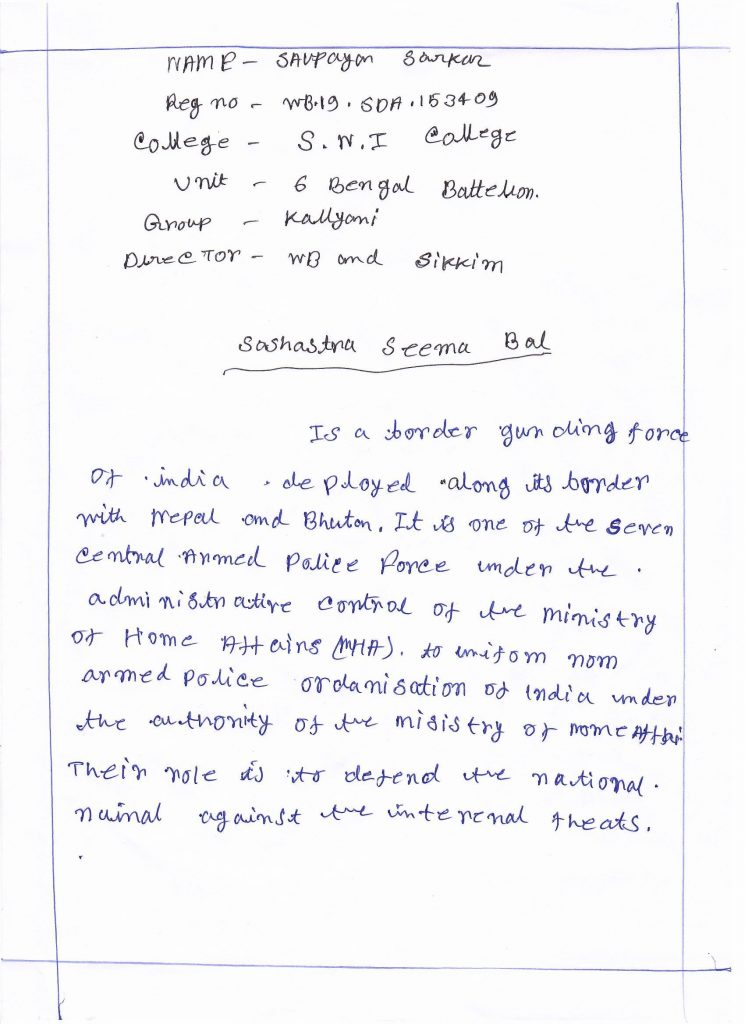 NAME - SAUPAYAN Sarkar
Reg no - WB.19.SDA.153409
College - S.N.I College
Unit - 6 Bengal Battelion.
Group - Kallyani
Director - WB and Sikkim
Sashastra Seema Bal
Is a border gunding force
of india deployed along its border
with Nepal and Bhutan. It is one of the seven
central Armed Police Force under the
administrative control of the ministry
of Home Affairs (MHA). to unifom nom
armed police ordanisation of India under
the authority of the misistry of nome Affair
Their role is to defend the national
nuinal against the interenal theats.